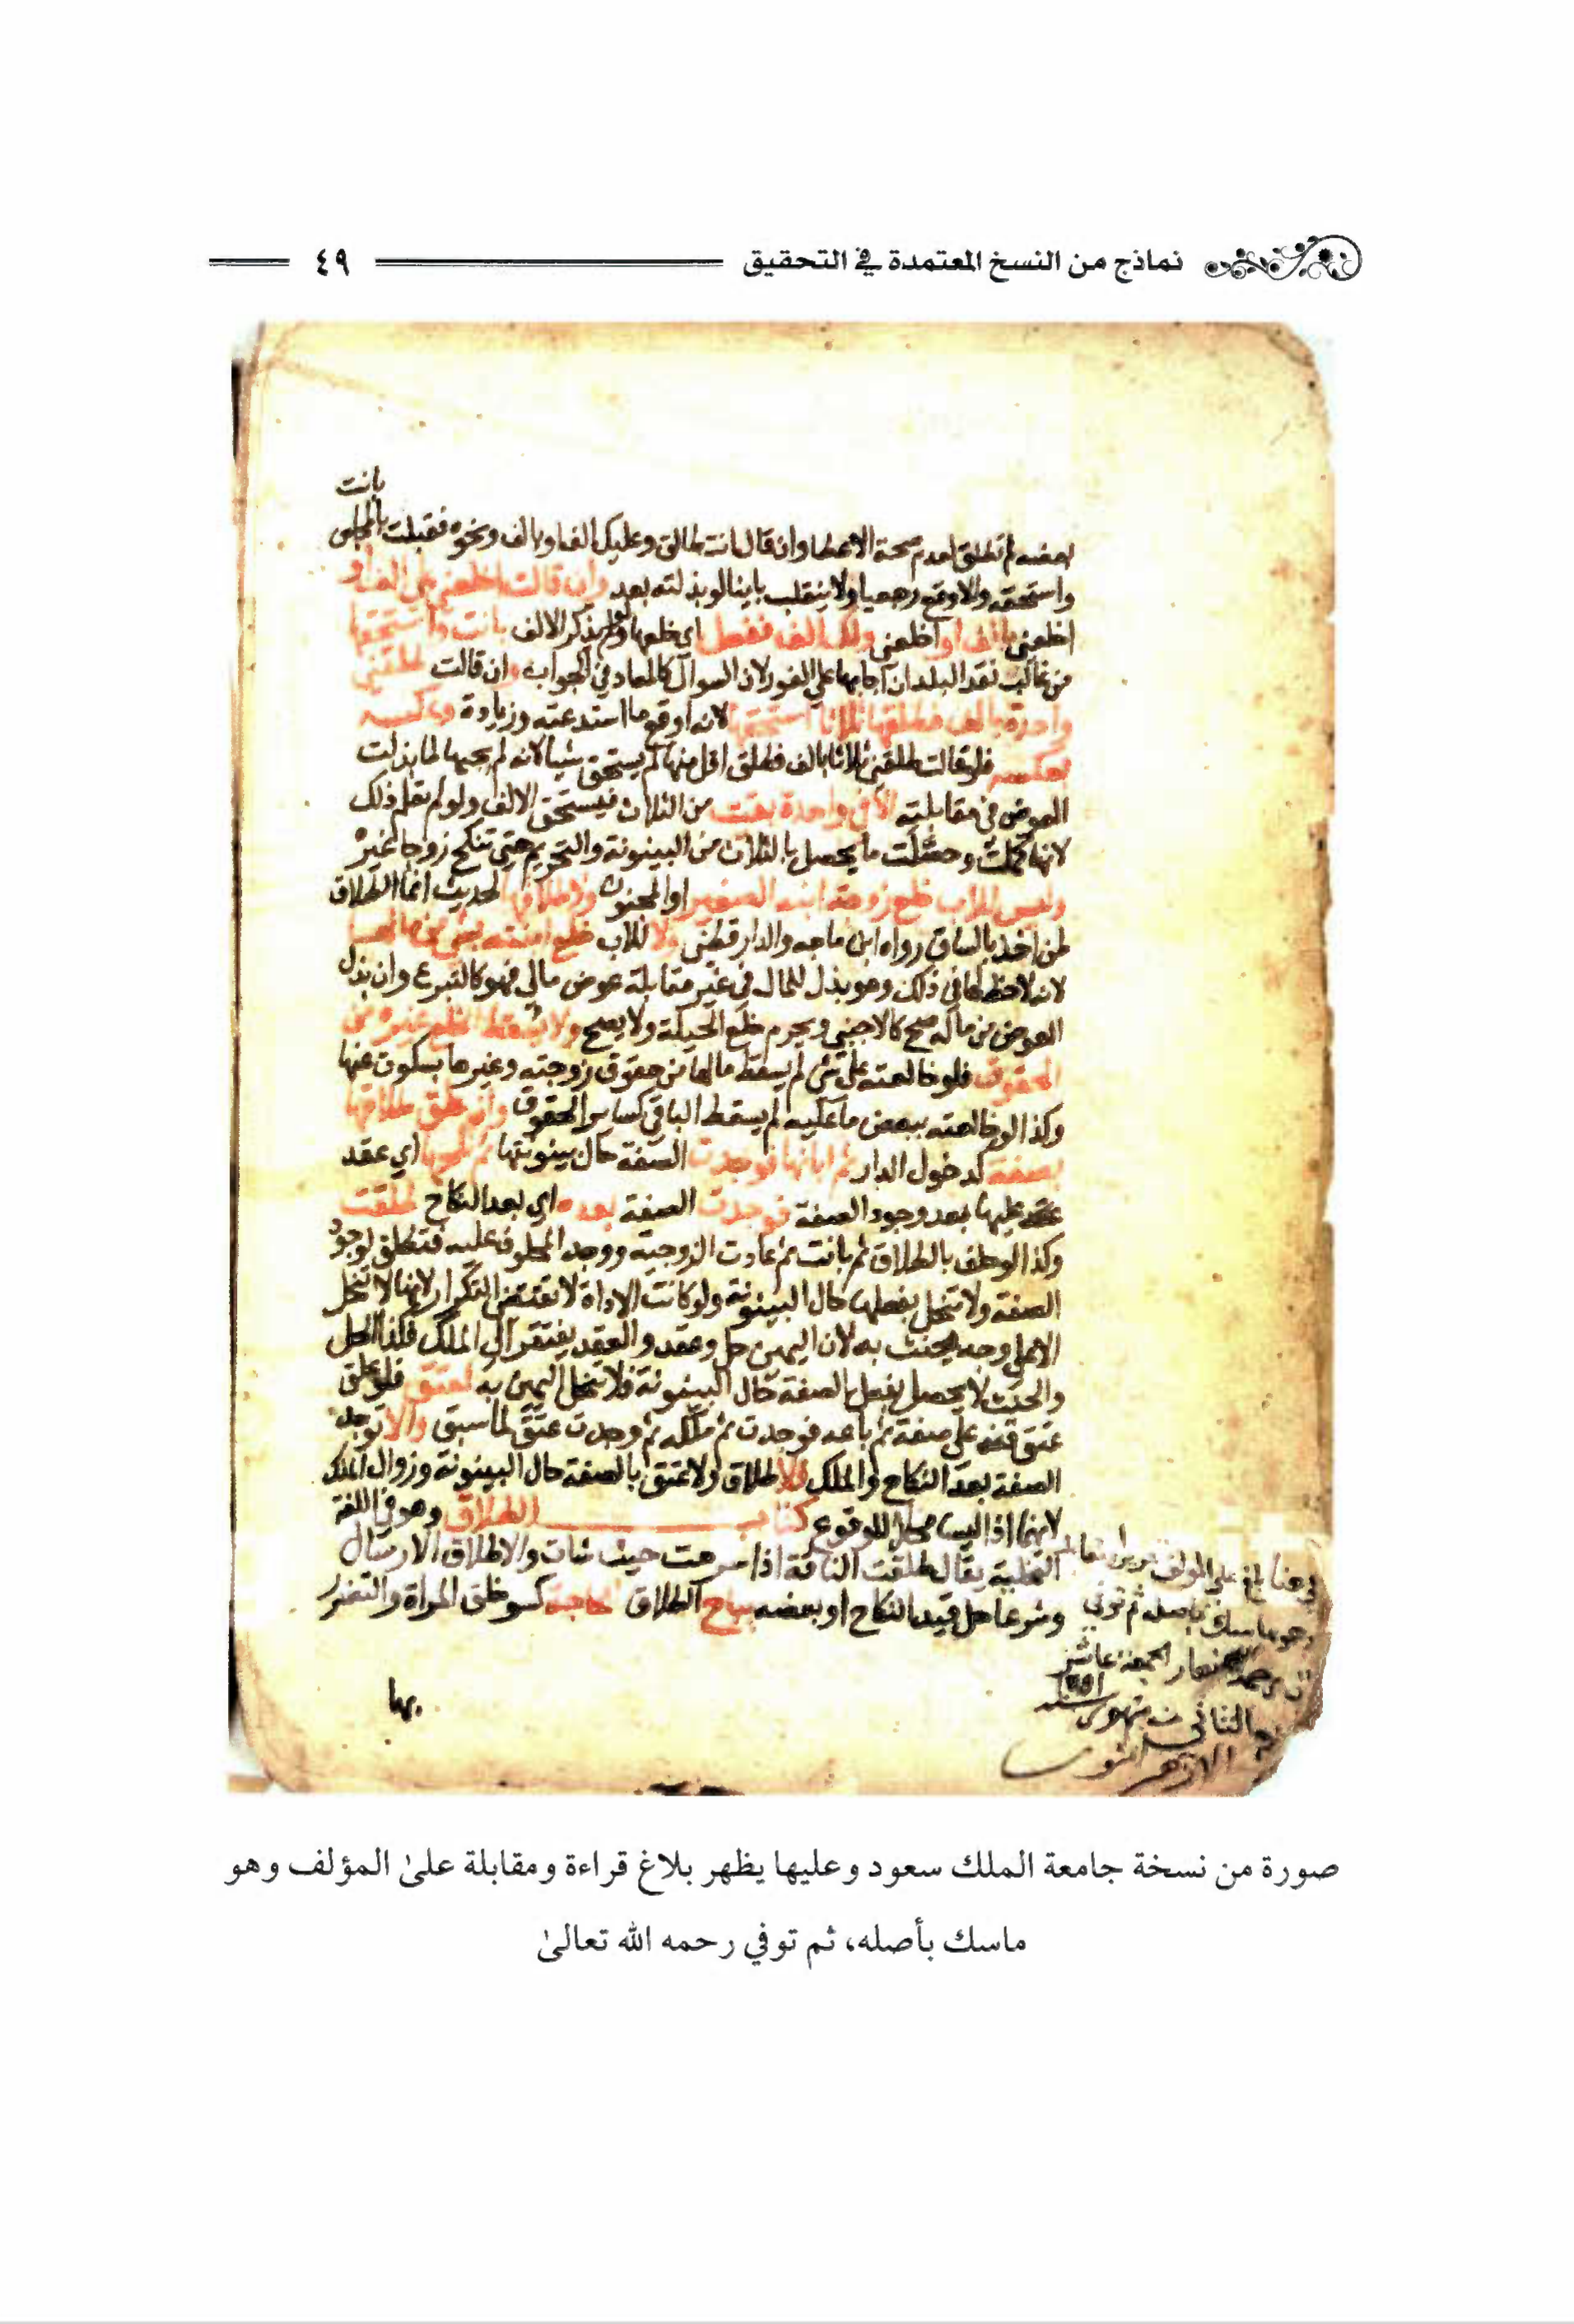 نماذج من النسخ المعتمدة في التحقيق ٤٩
بانت
لم تطلق لعدم صحة الاعطا وان قال انت طالق وعليك الف او بالف ونحوه فقبلت بالمجلس
واستحقه والا وقع رجعيا ولا ينقلب باينا لو بذلته بعد وان قالت اخلعني على الف او
اخلعني بالف او اخلعني ولك الف ففعل اي خلعها ولم يذكر الالف بانت واستحقها
من غالب نقد البلد ان اجابها على الفور لان السوال كالمعاد في الجواب وان قالت طلقني
واحدة بالف فطلقها ثلاثا استحقها لانه اوقع ما استدعته وزيادة وعكسه
بعكسه فلو قالت طلقني ثلاثا بالف فطلق اقل منها لم يستحق شيا لانه لم يجبها لما بذلت
العوض في مقابلته الا في واحدة بقيت من الثلاث فيستحق الالف ولو لم تعلم ذلك
لانها كملت وحصلت ما يحصل بالثلاث من البينونة والتحريم حتى تنكح زوجا غيره
وليس للاب خلع زوجة ابنه الصغير او المجنون ولا طلاقها لحديث انما الطلاق
لمن اخذ بالساق رواه ابن ماجه والدارقطني ولا للاب خلع ابنته بشي من مالها
لانه لا حظ لها في ذلك وهو بذل للمال في غير مقابلة عوض مالي فهو كالتبرع وان بذل
العوض من ماله صح كالاجنبي ويحرم خلع الحيلة ولا يصح ولا يسقط الخلع غيره من
الحقوق فلو خالعته على شي لم يسقط ما لها من حقوق زوجته وغيرها بسكوت عنها
وكذا لو خالعته ببعض ما عليه لم يسقط الباقي كساير الحقوق وان علق طلاقها
بصفة كدخول الدار ثم ابانها فوجدت الصفة حال بينونتها ثم نكحها اي عقد
عليها بعد وجود الصفة فوجدت الصفة بعده اي بعد النكاح طلقت
وكذا لو حلف بالطلاق ثم بانت ثم عادت الزوجية ووجد المحلوف عليه فتطلق لوجود
الصفة ولا تنحل بفعلها حال البينونة ولو كانت الاداة لا تقتضي التكرار لانها لا تنحل
الا على وجه يحنث به لان اليمين حل وعقد والعقد يفتقر الى الملك فكذا الحل
والحنث لا يحصل بفعل الصفة حال البينونة فلا تنحل اليمين به كعتق فلو علق
عتق قنه على صفة ثم باعه فوجدت ثم ملكه ثم وجدت عتق لما سبق والا توجد
الصفة بعد النكاح والملك فلا طلاق ولا عتق بالصفة حال البينونة وزوال الملك
لانهما اذا ليسا محلا للوقوع كتاب الطلاق وهو في اللغة
التخلية يقال طلقت الناقة اذا سرحت حيث شات والاطلاق الارسال
وشرعا حل قيد النكاح او بعضه يباح الطلاق لحاجة كسو خلق المراة والتضرر
بها
بلغ على المولف
وهو ماسك باصله ثم توفي
نهار الجمعة عاشر
الثاني من شهور سنة
صورة من نسخة جامعة الملك سعود وعليها يظهر بلاغ قراءة ومقابلة علىٰ المؤلف وهو
ماسك بأصله، ثم توفي رحمه الله تعالىٰ